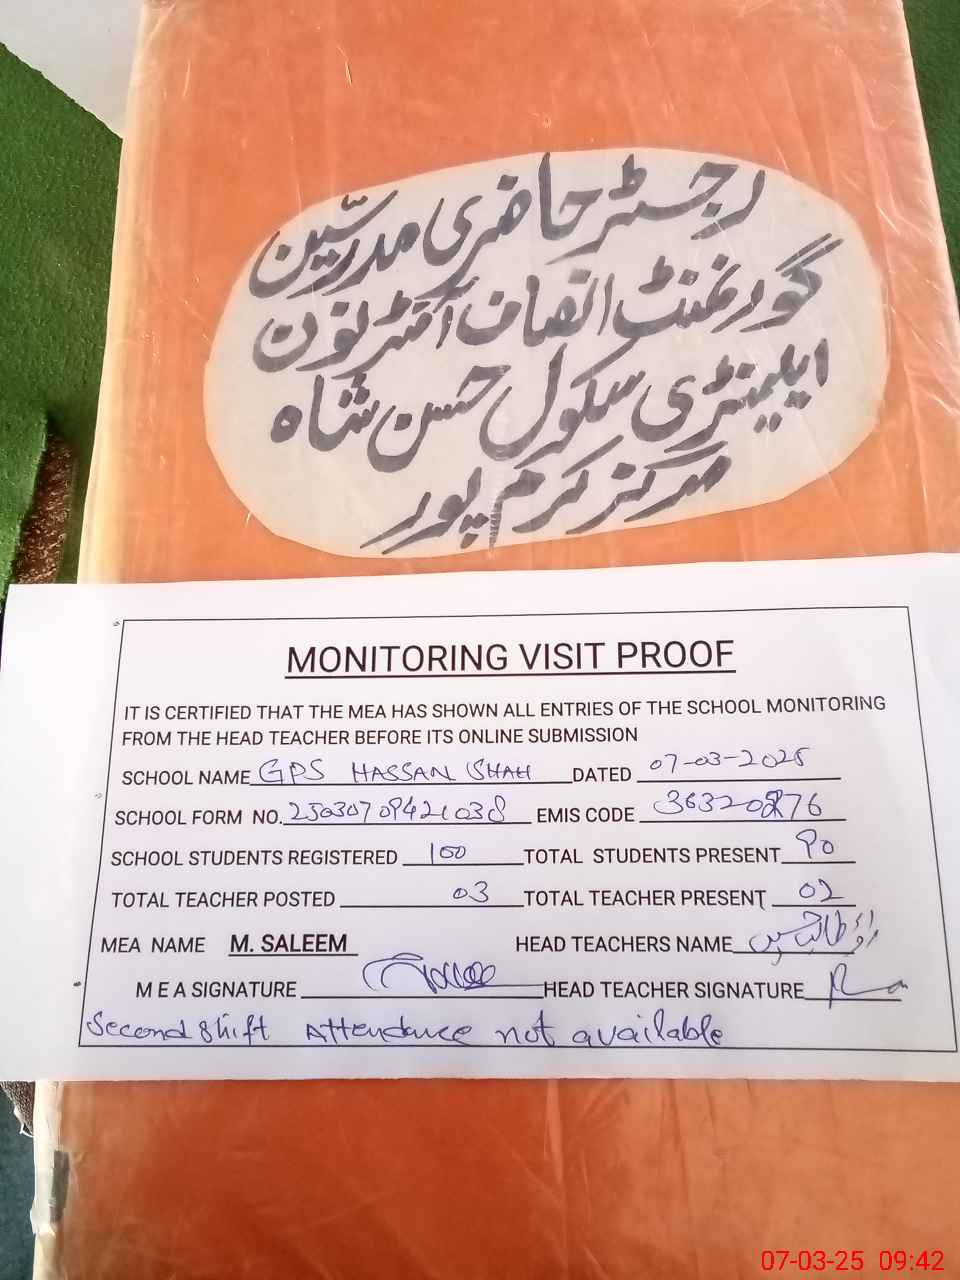 رجسٹر حاضری مدرسین
گورنمنٹ انصاف آفٹر نون
ایلیمنٹری سکول حسن شاہ
مرکز کرم پور
MONITORING VISIT PROOF
IT IS CERTIFIED THAT THE MEA HAS SHOWN ALL ENTRIES OF THE SCHOOL MONITORING
FROM THE HEAD TEACHER BEFORE ITS ONLINE SUBMISSION
SCHOOL NAME GPS HASSAN SHAH DATED 07-03-2025
SCHOOL FORM NO. 25030709421038 EMIS CODE 36320876
SCHOOL STUDENTS REGISTERED 100 TOTAL STUDENTS PRESENT 90
TOTAL TEACHER POSTED 03 TOTAL TEACHER PRESENT 02
MEA NAME M. SALEEM HEAD TEACHERS NAME راؤ طالب حسین
M E A SIGNATURE HEAD TEACHER SIGNATURE
Second Shift Attendance not available
07-03-25 09:42